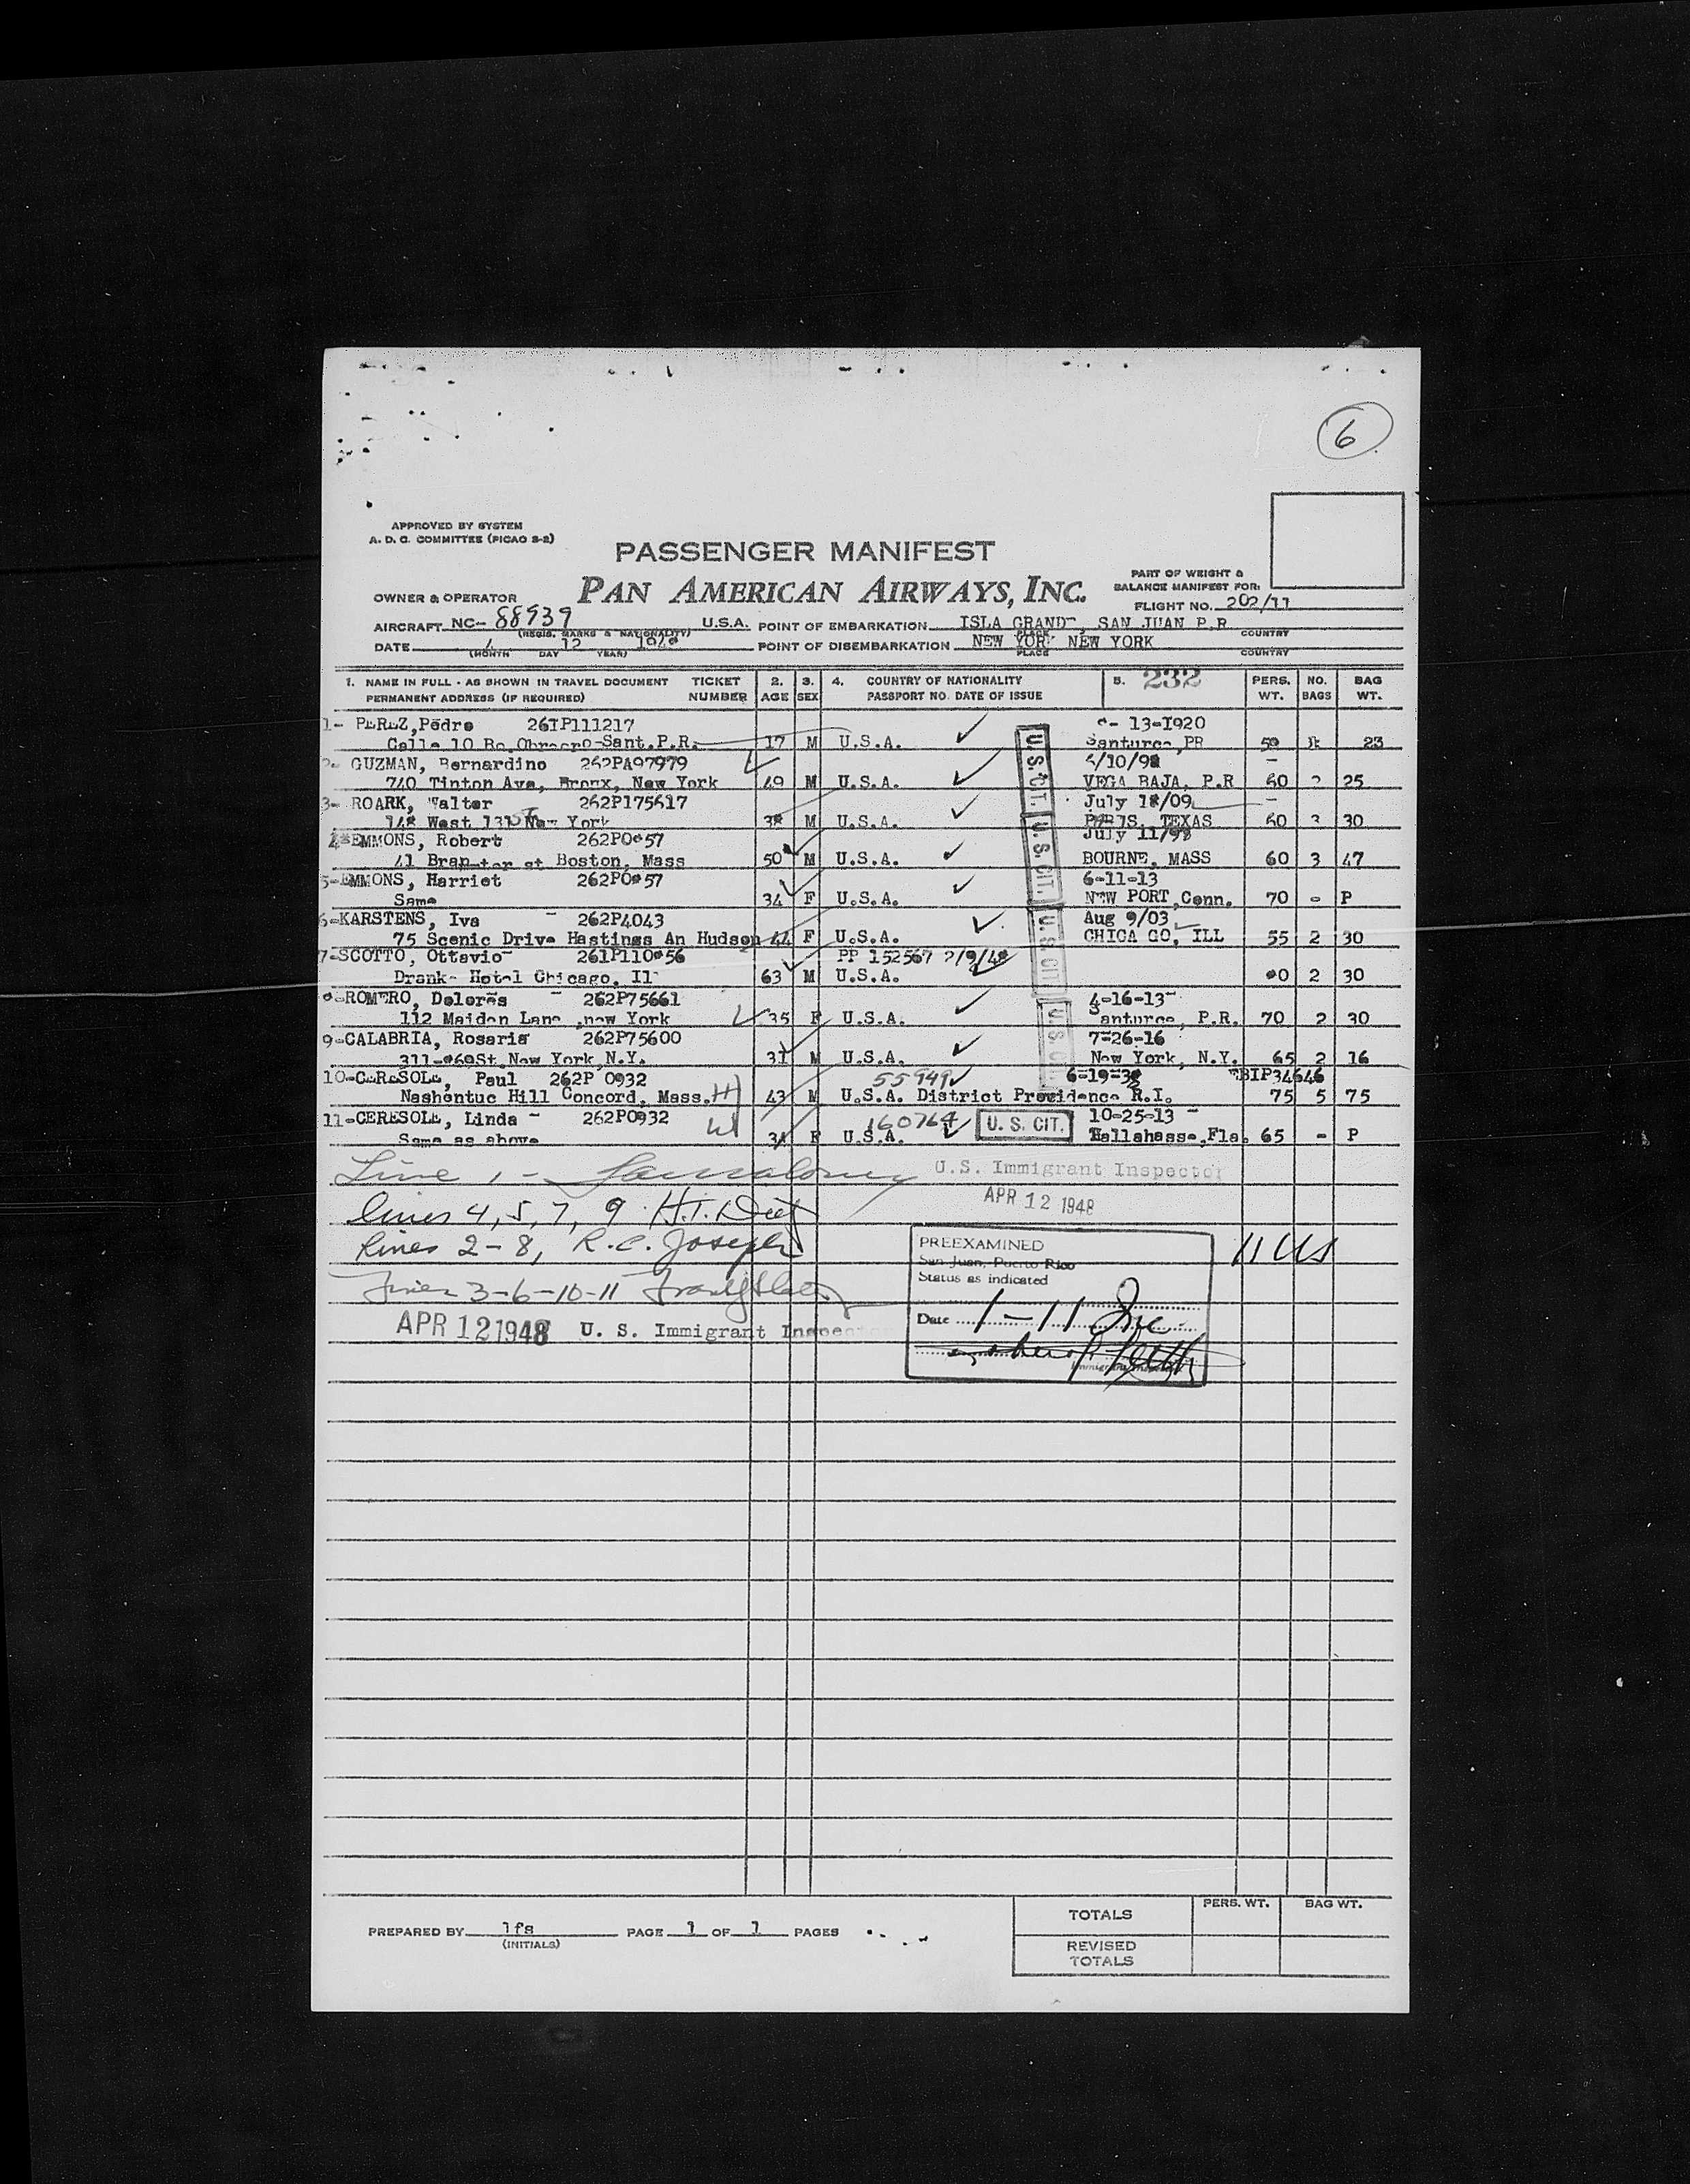 6
APPROVED BY SYSTEM
A. D. C. COMMITTEE (PICAO S-2)
PASSENGER MANIFEST
PAN AMERICAN AIRWAYS, INC.
PART OF WEIGHT &
BALANCE MANIFEST FOR:
OWNER & OPERATOR
FLIGHT NO. 202/11
AIRCRAFT NC- 88939 U.S.A. POINT OF EMBARKATION ISLA GRAND, SAN JUAN P.R
(REGIS. MARKS & NATIONALITY) PLACE COUNTRY
DATE 4 12 POINT OF DISEMBARKATION NEW YORK NEW YORK
(MONTH DAY YEAR) PLACE COUNTRY
1. NAME IN FULL - AS SHOWN IN TRAVEL DOCUMENT TICKET 2. 3. 4. COUNTRY OF NATIONALITY 5. 232 PERS. NO. BAG
PERMANENT ADDRESS (IF REQUIRED) NUMBER AGE SEX PASSPORT NO. DATE OF ISSUE WT. BAGS WT.
1- PEREZ,Pedro 261P111217 13-1920
Calle 10 Bo.Obrero-Sant.P.R. 17 M U.S.A. Santurce,PR 23
2- GUZMAN, Bernardino 262PA97979
740 Tinton Ave, Bronx, New York 49 M U.S.A. VEGA BAJA, P.R 60 2 25
3- ROARK, Walter 262P175617 July 18/09
148 West 131 New York 38 M U.S.A. PARIS, TEXAS 60 3 30
4-EMMONS, Robert 262P0857 July 11/98
41 st Boston, Mass 50 M U.S.A. BOURNE, MASS 60 3 47
5-EMMONS, Harriet 262P0857 6-11-13
Same 34 F U.S.A. NEW PORT,Conn. 70 - P
6-KARSTENS, Iva - 262P4043 Aug 9/03
75 Scenic Drive Hastings An Hudson 44 F U.S.A. CHICA GO, ILL 55 2 30
7-SCOTTO, Ottavio- 261P110856 PP 152567 2/9/48
Drake Hotel Chicago, Il 63 M U.S.A. 80 2 30
8-ROMERO, Dolores - 262P75661 4-16-13-
112 Maiden Lane ,new York 35 F U.S.A. Santurce, P.R. 70 2 30
9-CALABRIA, Rosaria 262P75600 7-26-16
311-869St New York,N.Y. 31 M U.S.A. New York, N.Y. 65 2 16
10-CERESOLE, Paul 262P 0932 55949 6-19-38 EBIP34646
Nashentuc Hill Concord, Mass. H 43 M U.S.A. District Providence R.I. 75 5 75
11-CERESOLE, Linda - 262P0932 160764 U. S. CIT. 10-25-13 -
Same as above W 34 F U.S.A. Tallahasse,Fla. 65 - P
U.S. CIT.
U.S. CIT.
U.S. CIT
U.S. C
Line 1 -
U.S. Immigrant Inspector
APR 12 1948
Lines 4, 5, 7, 9 H.T.
Lines 2-8, R.C. Joseph
Lines 3-6-10-11
APR 12 1948 U. S. Immigrant Inspector
PREEXAMINED
San Juan, Puerto Rico
Status as indicated
Date 1-11 Inc.
Immigrant Inspector
11 US
PREPARED BY lfs PAGE 1 OF 1 PAGES
(INITIALS)
PERS. WT. BAG WT.
TOTALS
REVISED
TOTALS